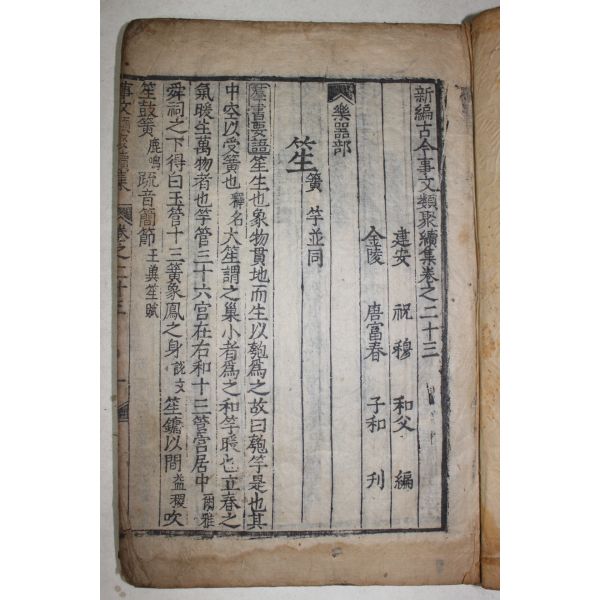 新編古今事文類聚續集卷之二十三
建安 祝穆 和父 編
金陵 唐富春 子和 刋
樂器部
笙 簧 竽並同
羣書要語笙生也象物貫地而生以匏爲之故曰匏竽是也其
中空以受簧也釋名大笙謂之巢小者爲之和竽暖也立春之
氣暖生萬物者也竽管三十六宮在右和十三管宮居中爾雅
舜祠之下得曰玉管十三簧象鳳之身說文笙鏞以間益稷吹
笙鼓簧鹿鳴䟽音簡節王㒓笙賦
事文類聚續集 卷之二十三 一